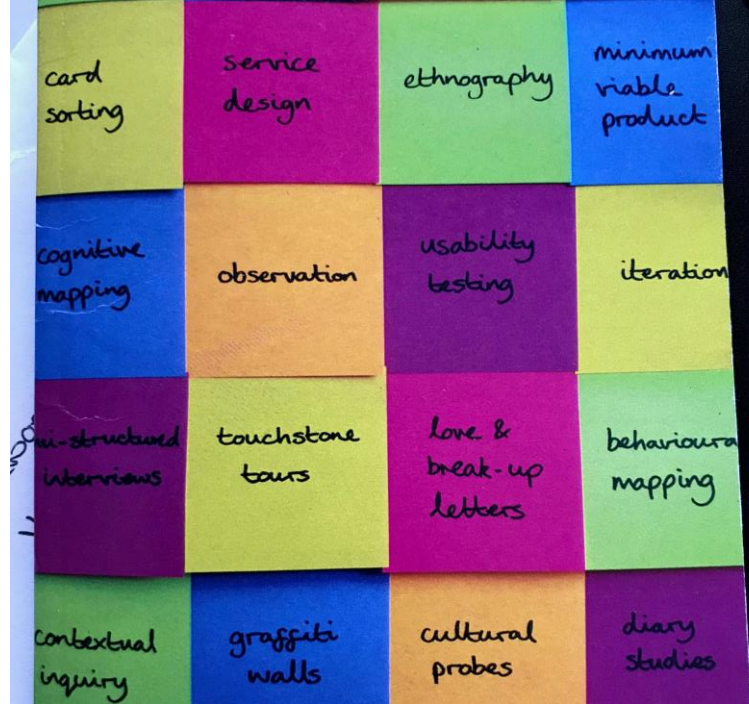 card
sorting
service
design
ethnography
minimum
viable
product
cognitive
mapping
observation
usability
testing
iteration
mi-structured
interviews
touchstone
tours
love &
break-up
letters
behavioura
mapping
contextual
inquiry
graffiti
walls
cultural
probes
diary
studies